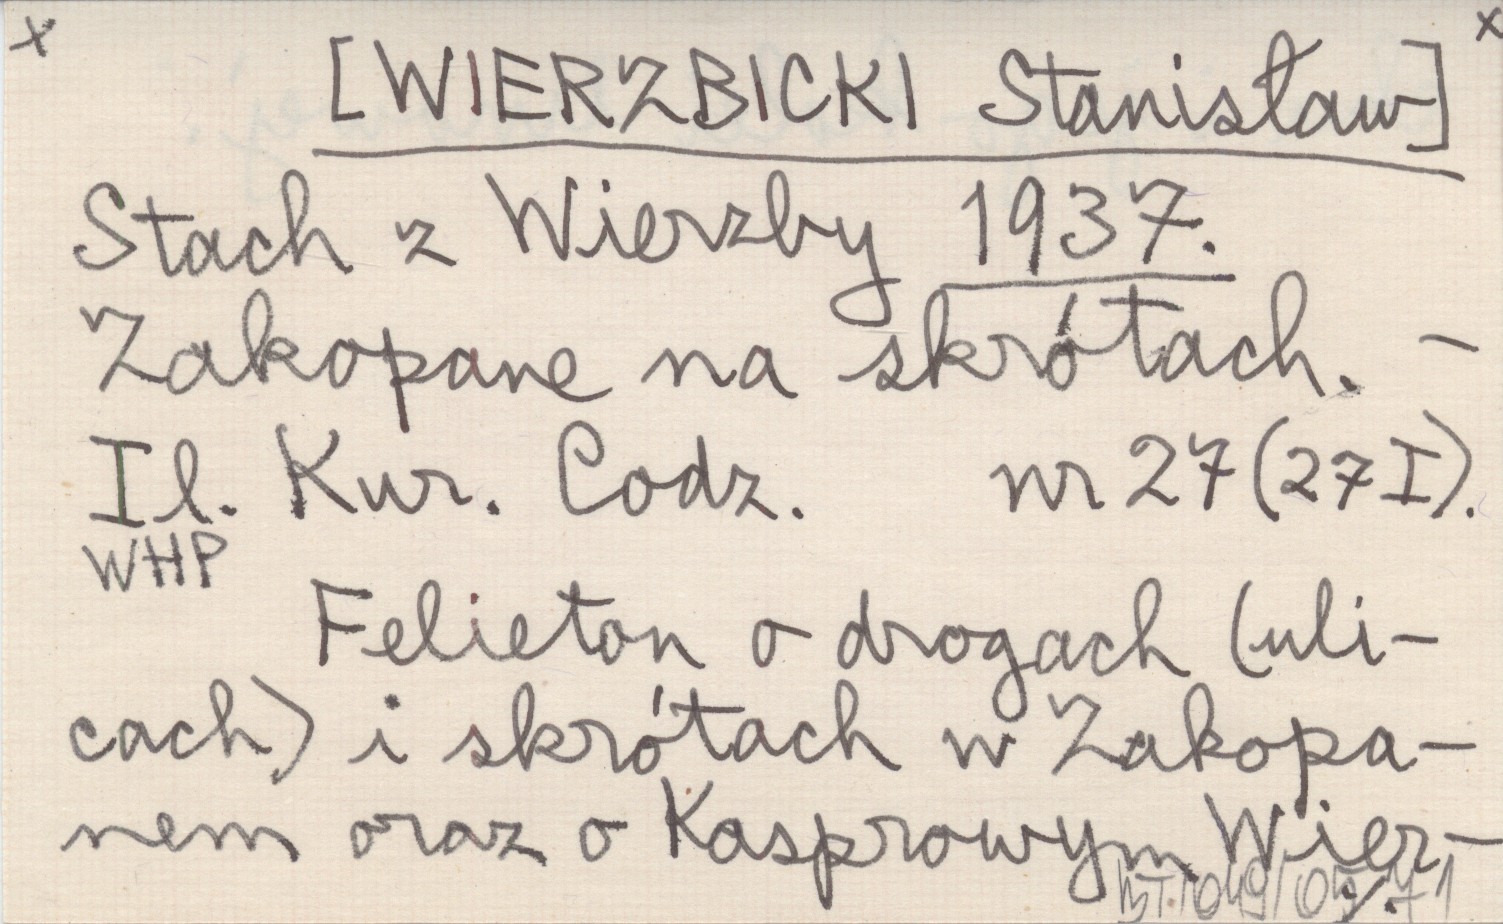 x x
[WIERZBICKI Stanisław]
Stach z Wierzby 1937.
Zakopane na skrótach. –
Il. Kur. Codz. nr 27 (27 I).
WHP
Felieton o drogach (uli-
cach) i skrótach w Zakopa-
nem oraz o Kasprowym Wier-